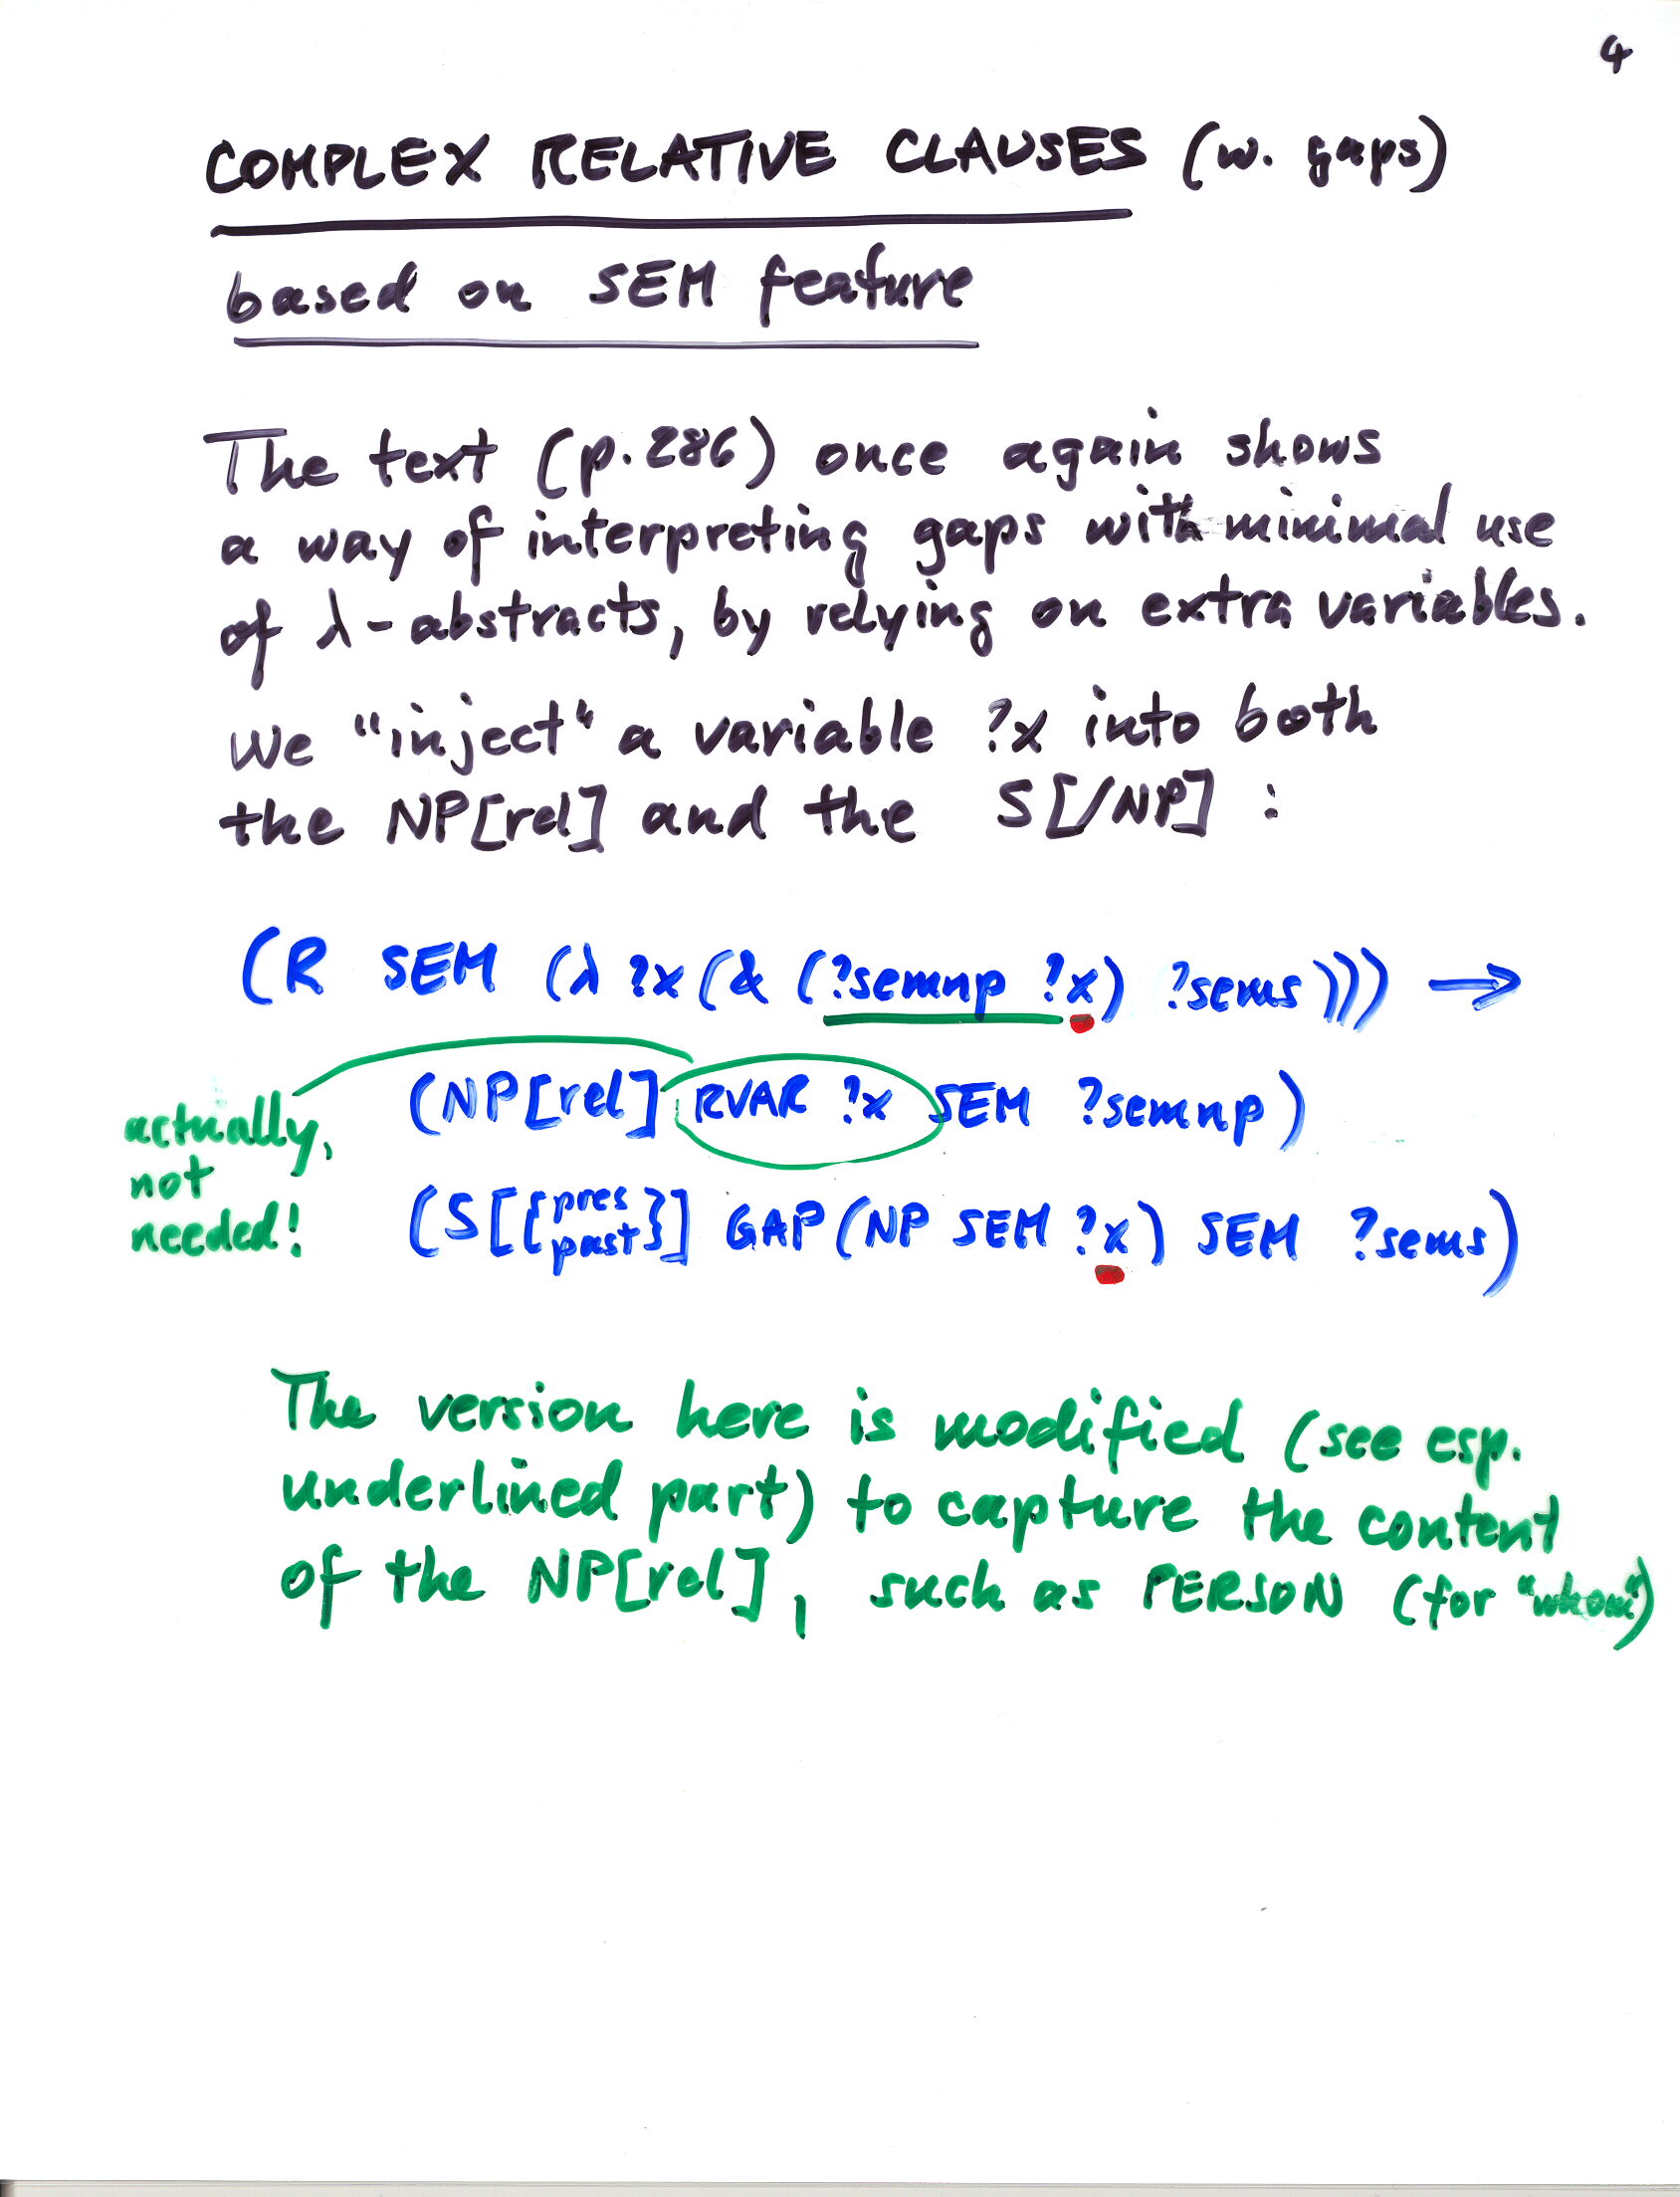 4
COMPLEX RELATIVE CLAUSES (w. gaps)
based on SEM feature
The text (p.286) once again shows
a way of interpreting gaps with minimal use
of λ-abstracts, by relying on extra variables.
We "inject" a variable ?x into both
the NP[rel] and the S[/NP] :
(R SEM (λ ?x (& (?semnp ?x) ?sems))) →
(NP[rel] RVAR ?x SEM ?semnp)
actually,
not
needed!
(S[{pres past}] GAP (NP SEM ?x) SEM ?sems)
The version here is modified (see esp.
underlined part) to capture the content
of the NP[rel], such as PERSON (for "whom")